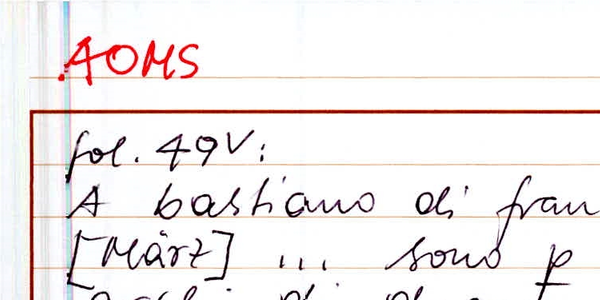 AOMS
fol. 49v:
A bastiano di fran
[März] ... sono p